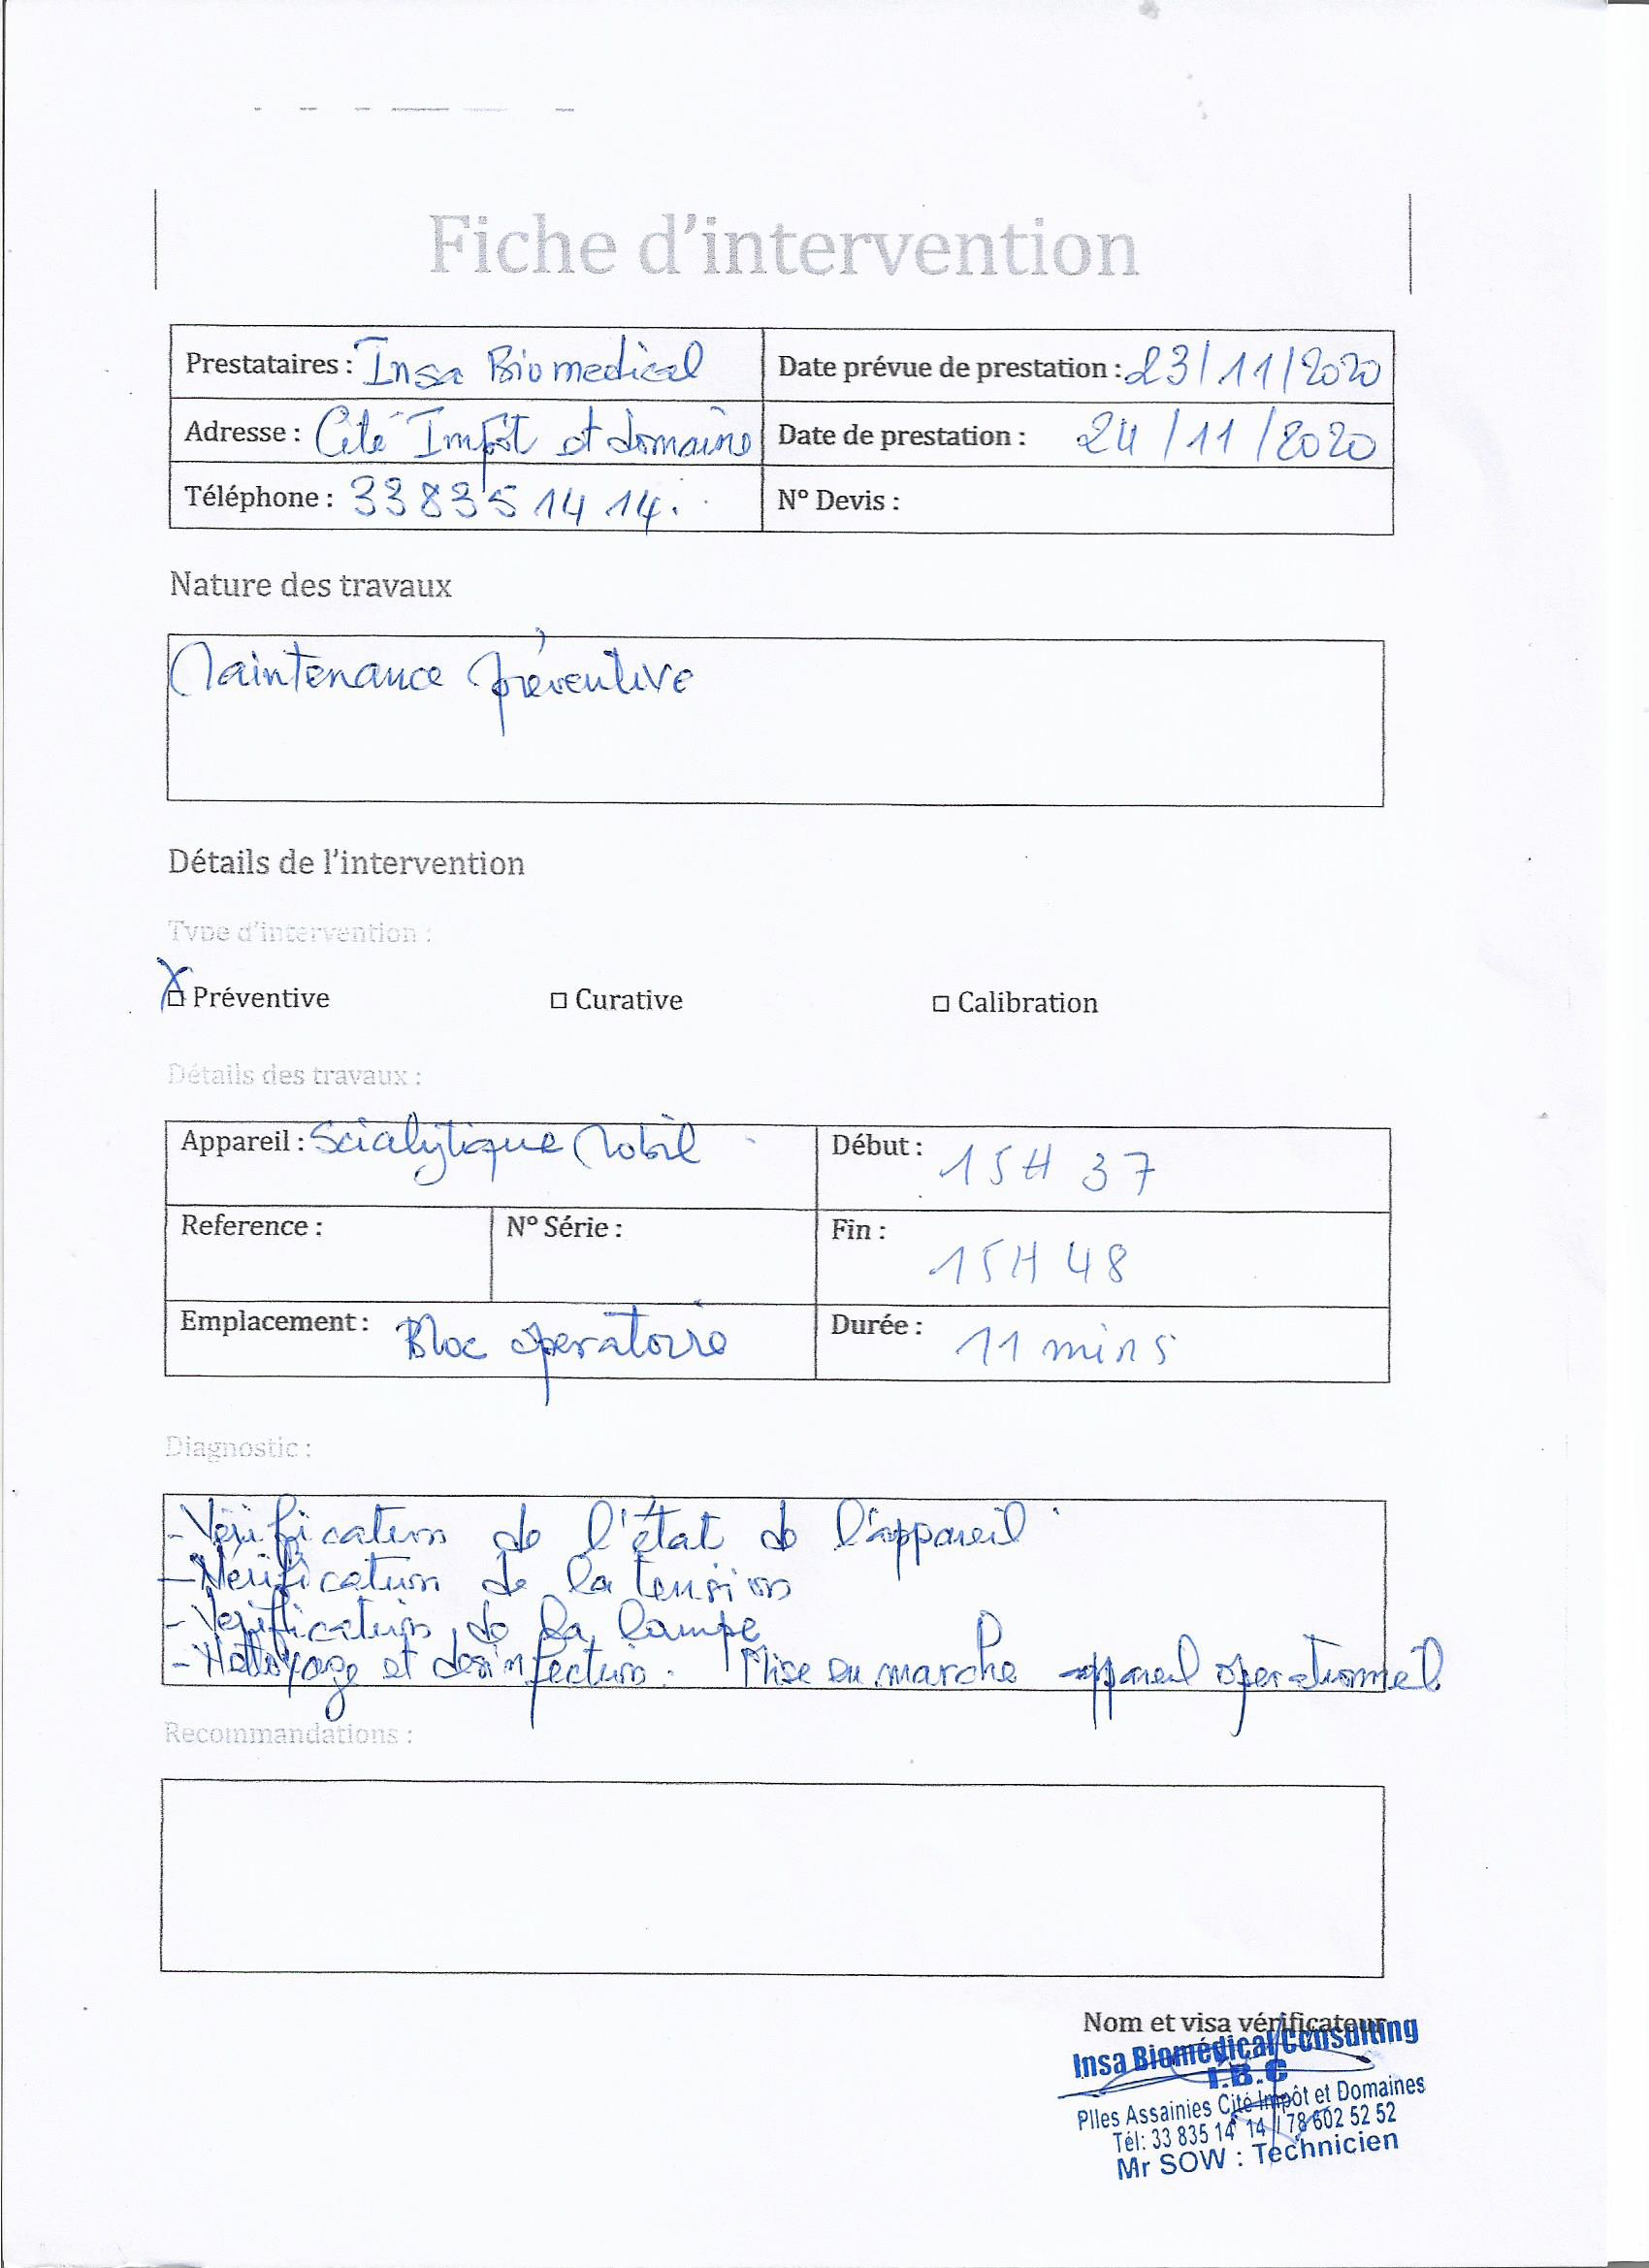 Fiche d'intervention
Prestataires : Insa Biomedical
Date prévue de prestation : 23/11/2020
Adresse : Cité Impôt et domaine
Date de prestation : 24/11/2020
Téléphone : 33 835 14 14.
N° Devis :
Nature des travaux
Maintenance préventive
Détails de l'intervention
Type d'intervention :
☒ Préventive ☐ Curative ☐ Calibration
Détails des travaux :
Appareil : Scialytique Mobil
Début : 15H 37
Reference : N° Série :
Fin : 15H 48
Emplacement : Bloc operatoire
Durée : 11 mins
Diagnostic :
- Vérification de l'état de l'appareil
- Vérification de la tension
- Verification de la lampe
- Nettoyage et desinfection. Mise en marche appareil operationnel
Recommandations :
Nom et visa vérificateur
Insa Biomédical Consulting
I.B.C
Plles Assainies Cité Impôt et Domaines
Tél: 33 835 14 14 / 78 602 52 52
Mr SOW : Technicien